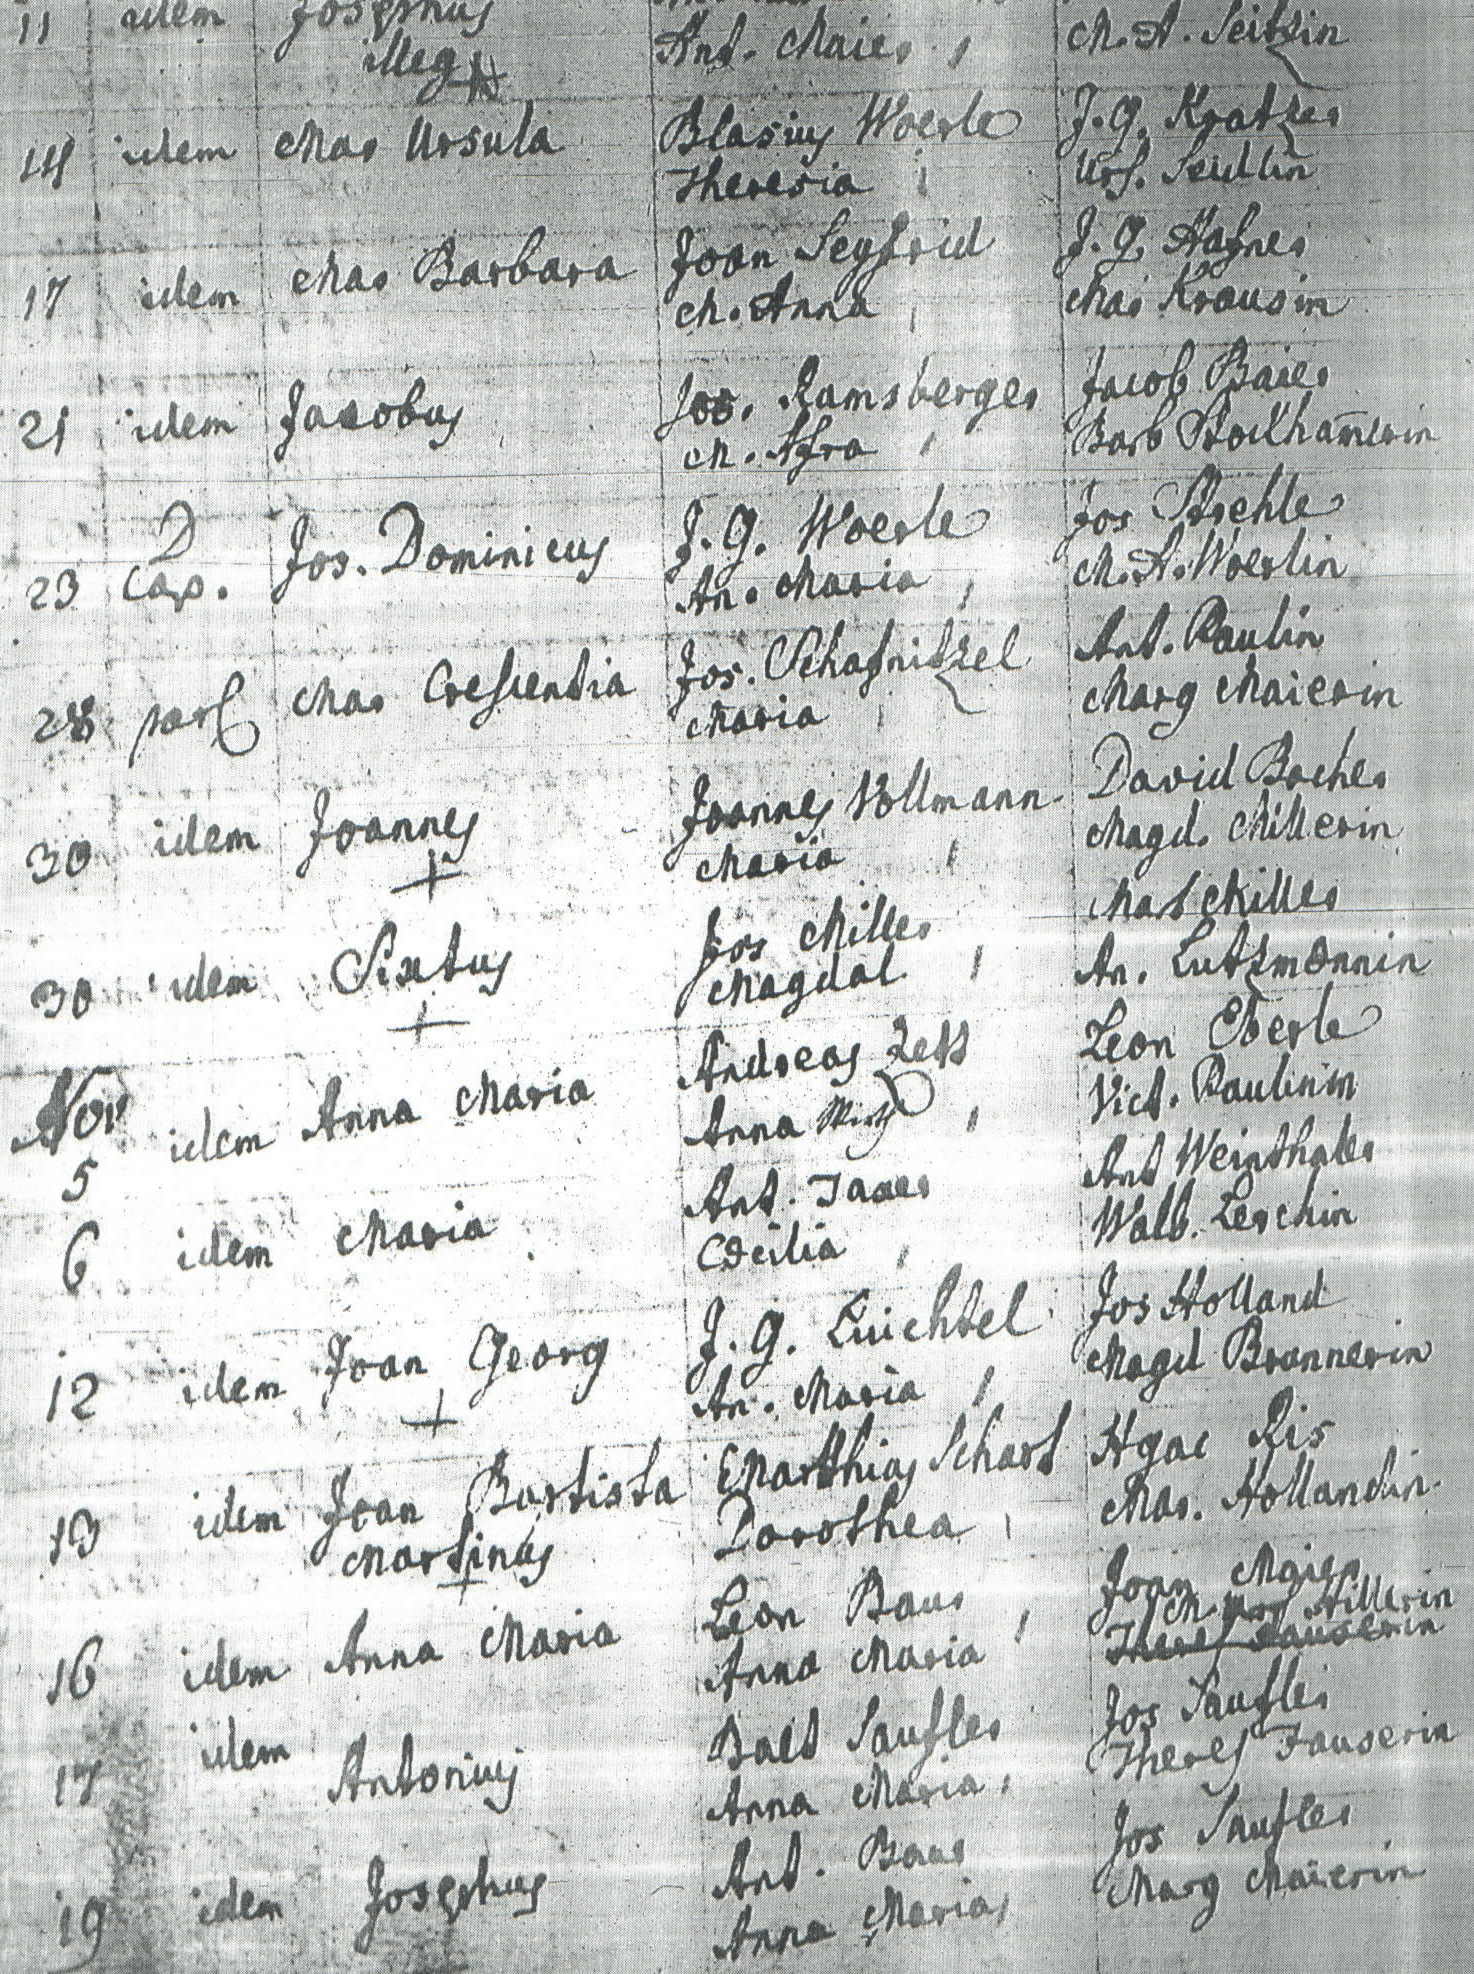 11 idem Josephus
illeg
Ant. Maier, M. A. Seitzin
14 idem Mar Ursula Blasius Woerle J. G. Kratzer
Theresia, Urs.
17 idem Mar Barbara Joan Seyfrid J. G. Hafner
M. Anna, Mar Krausin
21 idem Jacobus Jos. Ramsberger Jacob Baier
M. Afra, Barb Stockham̅erin
23 D Cap. Jos. Dominicus J. G. Woerle Jos Stechle
An. Maria, M. A. Woerlin
28 Mar Crescentia Jos. Schafnitzel Ant. Paulin
Maria, Marg Maierin
30 idem Joannes Joannes Vollmann David Bocher
Maria, Magd. Millerin
30 idem Sixtus Jos Miller Mart Miller
Magdal, An. Lutzmannin
Nov
5 idem Anna Maria Andreas Leon Eberle
Anna, Vict. Paulinin
6 idem Maria Ant. Ant Weinthaler
Cæcilia, Walb. Lerchin
12 idem Joan Georg J. G. Luichtel Jos Holland
An. Maria, Magd Brannerin
13 idem Joan Baptista Matthias Schart Ris
Martinus Dorothea, Mar. Hollandin
16 idem Anna Maria Leon Baur, Joan Maier
Anna Maria M. Hillerin
Theres Fauserin
17 idem Antonius Balt Saufler Jos Saufler
Anna Maria, Theres Fauserin
19 idem Josephus Ant. Baur Jos Saufler
Anna Maria, Marg Maierin